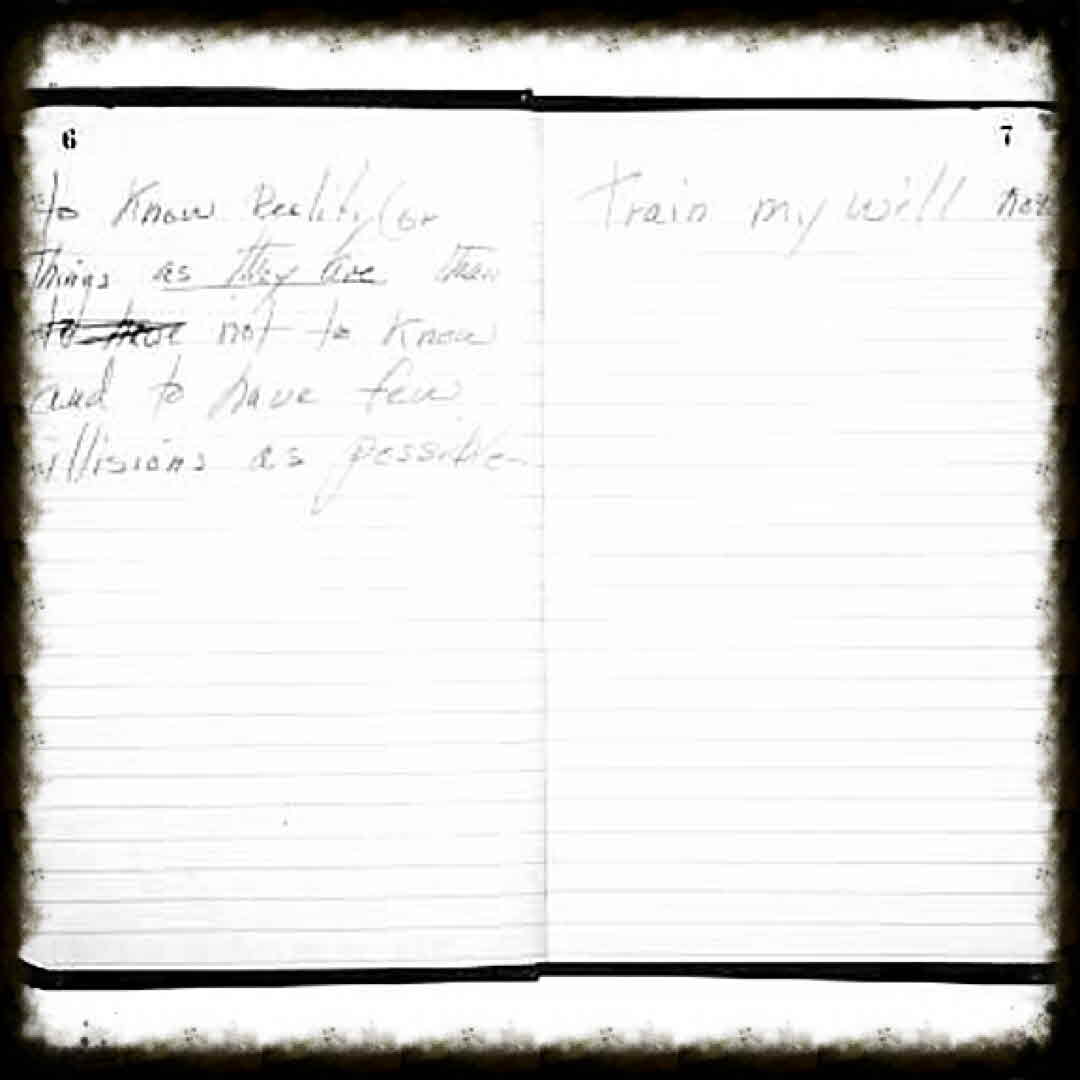 6
to Know Reality (or
things as they are than
to have not to know
and to have few
illisions as possible
7
Train my will now